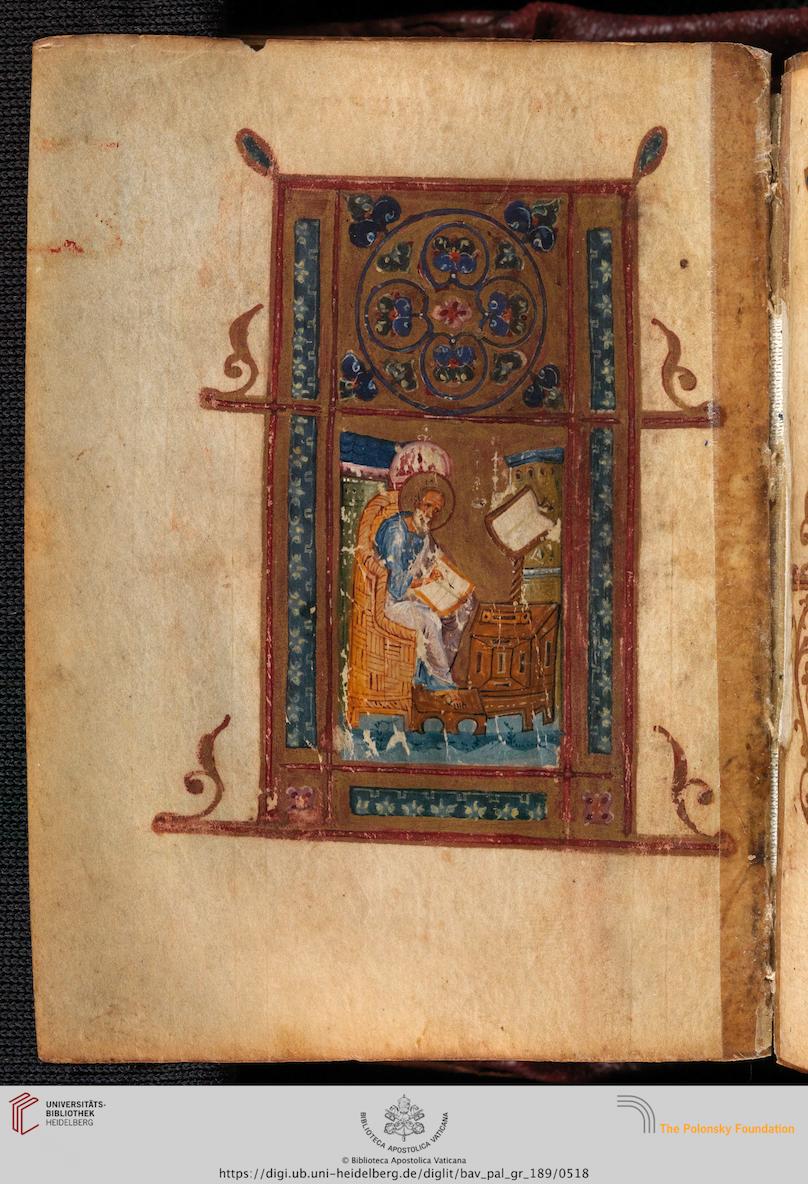 UNIVERSITÄTS-
BIBLIOTHEK
HEIDELBERG
BIBLIOTECA APOSTOLICA VATICANA
The Polonsky Foundation
© Biblioteca Apostolica Vaticana
https://digi.ub.uni-heidelberg.de/diglit/bav_pal_gr_189/0518